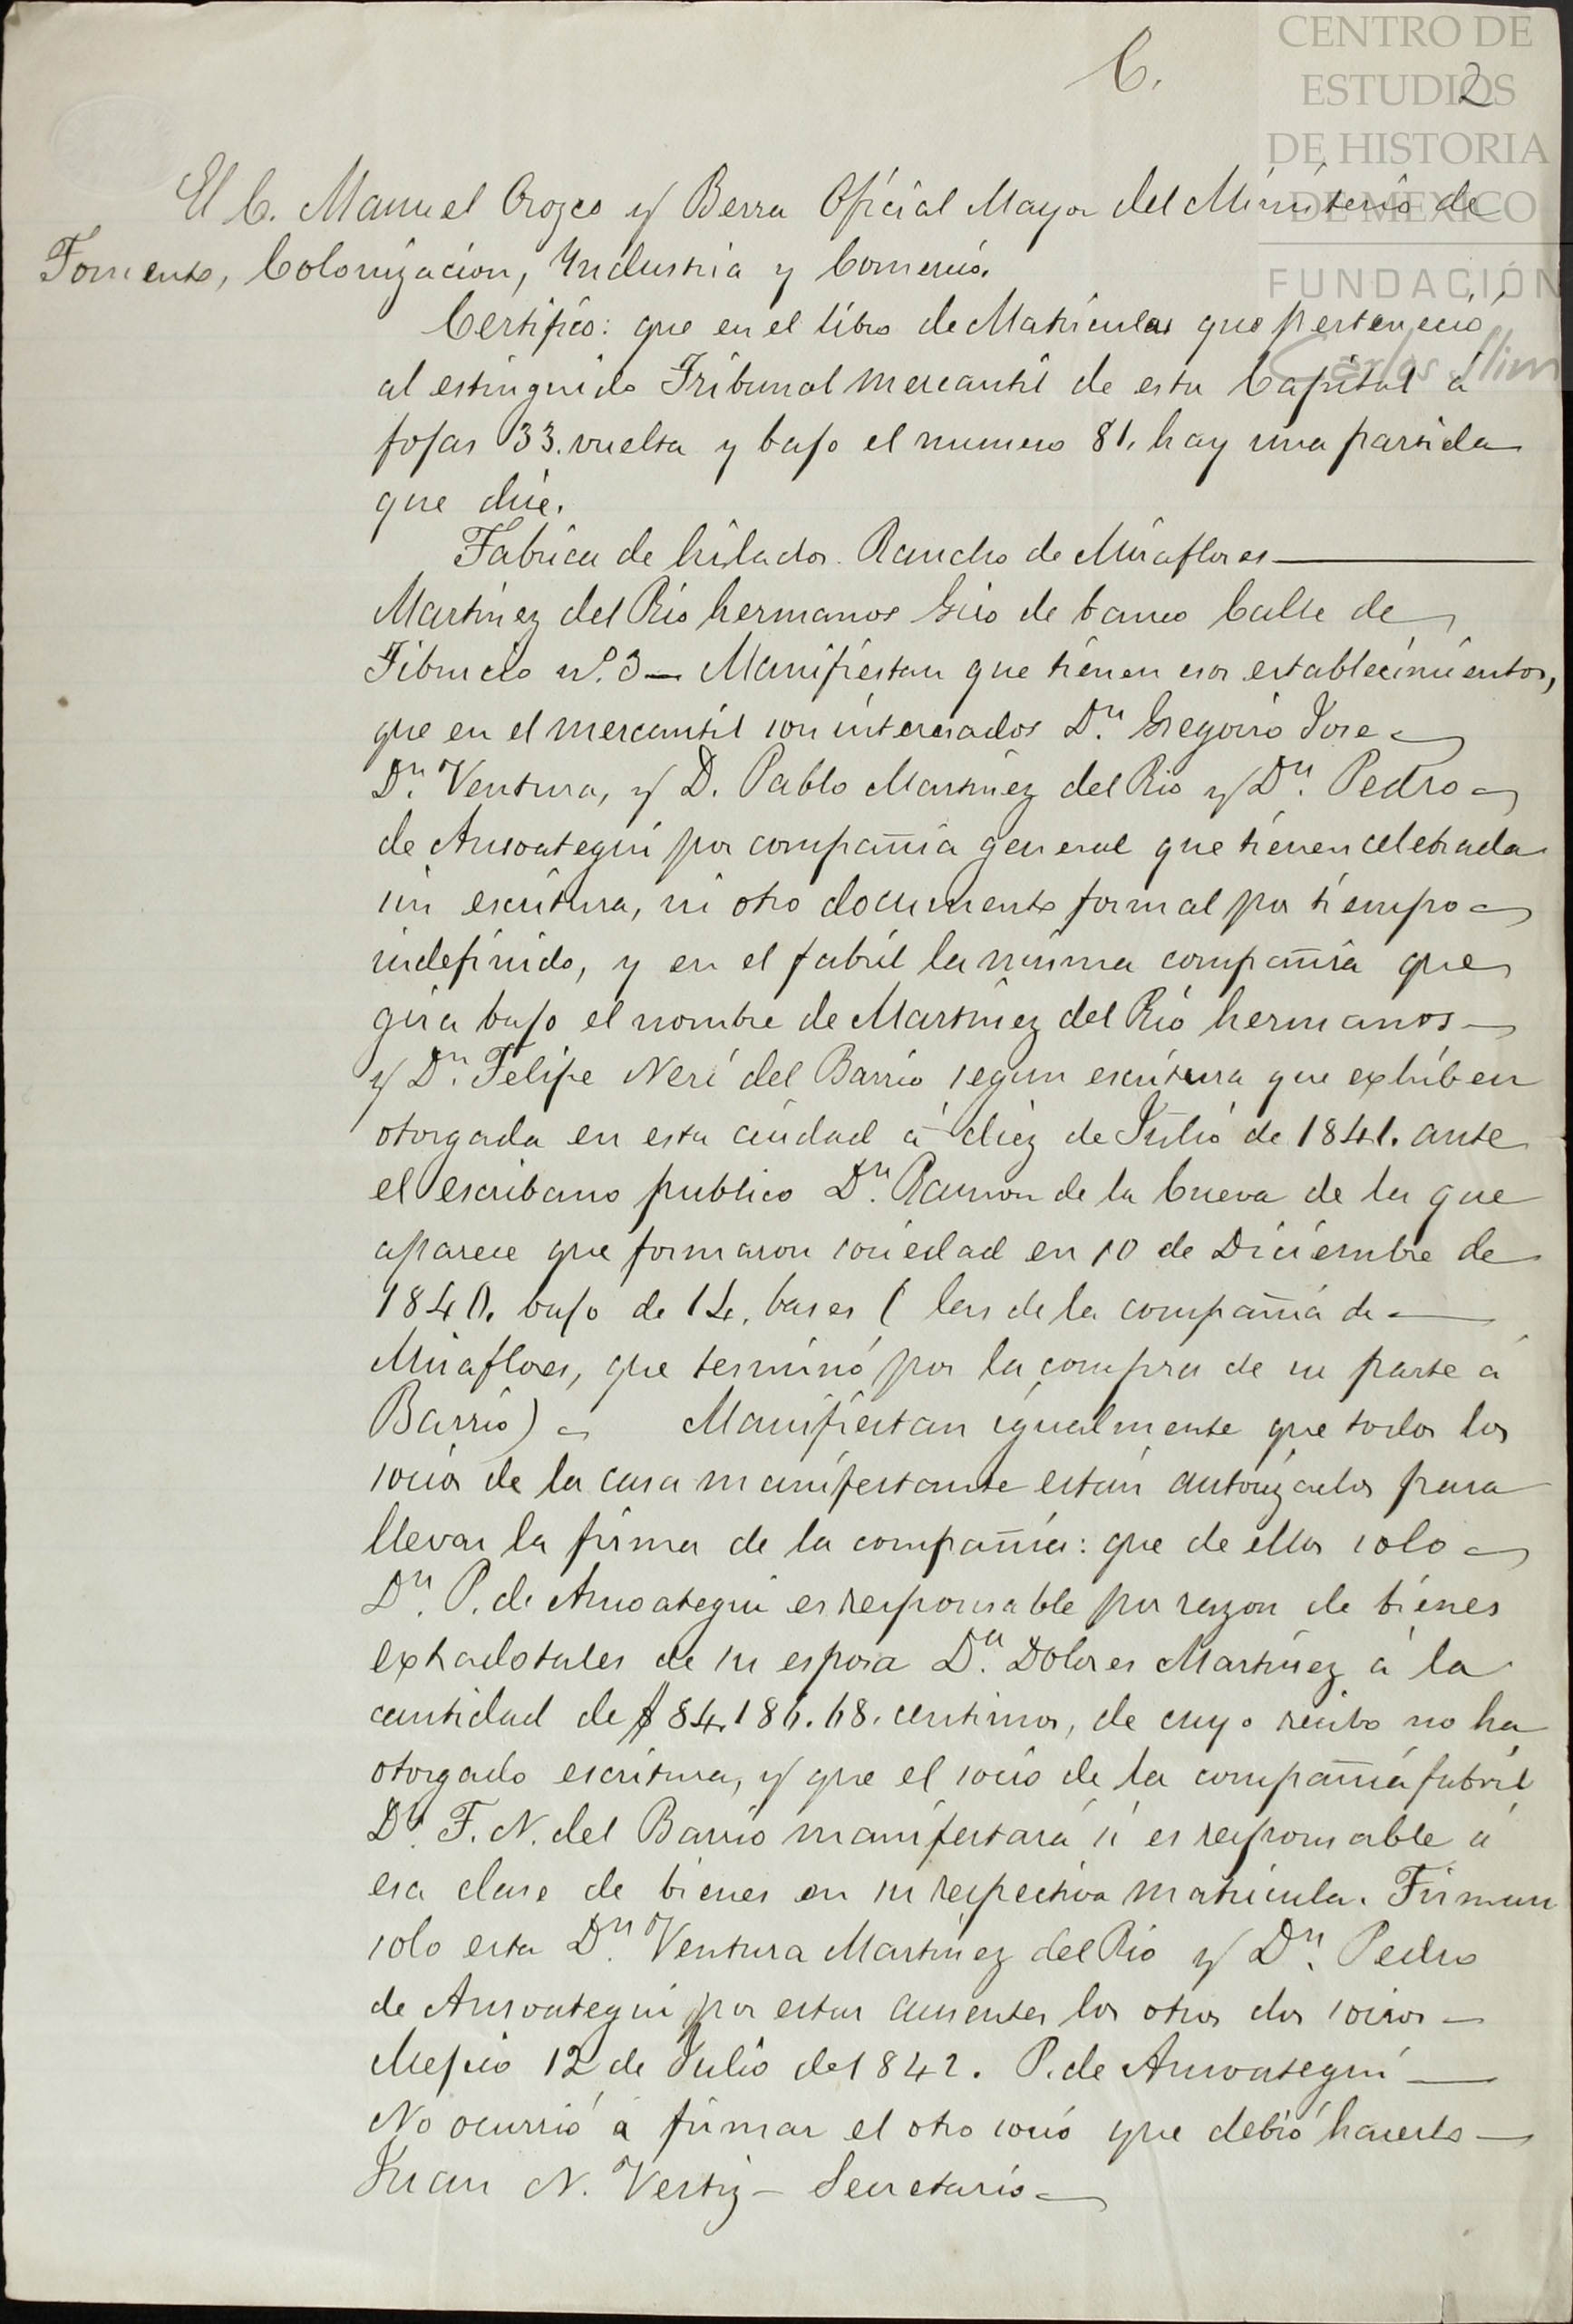 CENTRO DE
ESTUDIOS
DE HISTORIA
DE MÉXICO
FUNDACIÓN
Carlos Slim
C.
2
El C. Manuel Orozco y Berra Oficial Mayor del Ministerio de
Fomento, Colonizacion, Industria y Comercio.
Certifico: que en el libro de Matriculas que perteneció
al estinguido Tribunal mercantil de esta Capital á
fojas 33. vuelta y bajo el numero 81. hay una partida
que dice.
Fabrica de hilados. Rancho de Miraflores
Martinez del Rio hermanos Giro de banco Calle de
Tiburcio nº. 3 — Manifiestan que tienen esos establecimientos,
que en el mercantil son interesados Dn. Gregorio Jose
Dn. Ventura, y D. Pablo Martinez del Rio y Dn. Pedro
de Ansoategui por compañia general que tienen celebrada
sin escritura, ni otro documento formal por tiempo
indefinido, y en el fabril la misma compañia que
gira bajo el nombre de Martinez del Rio hermanos
y Dn. Felipe Neri del Barrio segun escritura que exhiben
otorgada en esta ciudad á diez de Julio de 1841. ante
el escribano publico Dn. Ramon de la Cueva de la que
aparece que formaron sociedad en 10 de Diciembre de
1840. bajo de 14. bases ( las de la compañia de
Miraflores, que terminó por la compra de su parte á
Barrio) Manifiestan igualmente que todos los
socios de la casa manifestante están autorizados para
llevar la firma de la compañia: que de ellos solo
Dn. P. de Ansoategui es responsable por razon de bienes
extradotales de su esposa Da. Dolores Martinez á la
cantidad de $ 84.186.68. centimos, de cuyo recibo no ha
otorgado escritura, y que el socio de la compañia fabril
Dn. F. N. del Barrio manifestará si es responsable á
esa clase de bienes en su respectiva matricula. Firman
solo esta Dn. Ventura Martinez del Rio y Dn. Pedro
de Ansoategui por estar ausentes los otros dos socios —
Mejico 12 de Julio de 1842. P. de Ansoategui —
No ocurrió á firmar el otro socio que debió hacerlo —
Juan N. Vertiz — Secretario